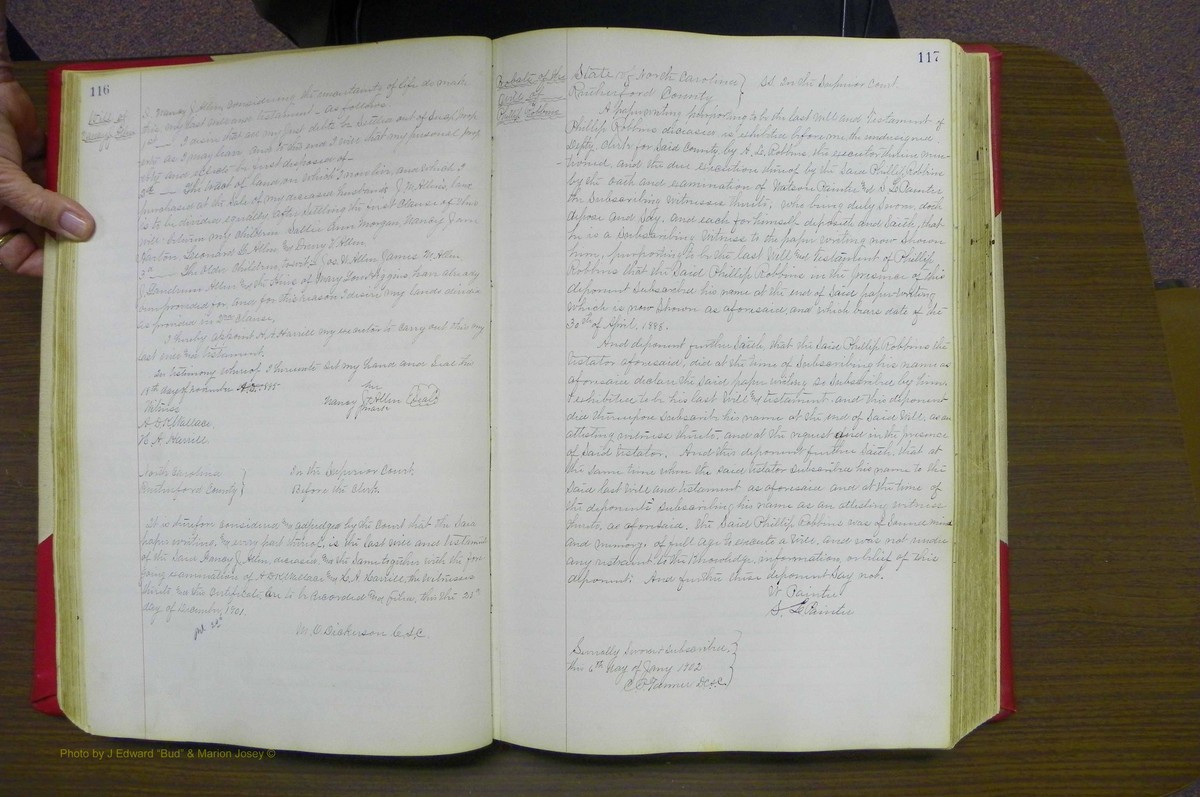 116
Will of
Nancy J. Allen
I, Nancy J. Allen, considering the uncertainty of life do make
this my last will and testament - as follows
1st I desire that all my just debts be settled out of such prop
erty as I may leave and to this end I will that my personal prop
erty and effects be first disposed of -
2nd The tract of land on which I now live, and which I
purchased at the sale of my deceased husband's J. M. Allen's land
is to be divided equally after settling the first clause of this
will between my children Sallie Ann Morgan, Nancy Jane
Leonard G. Allen and Allen
3rd The older children, to wit: Allen, James W. Allen
J. Landrum Allen and the heirs of Mary Lou Huggins have already
been provided for and for this reason I desire my lands divided
as provided in 2nd clause,
I hereby appoint H. A. Harrill my executor to carry out this my
last will and testament.
In testimony whereof I hereunto set my hand and seal this
18th day of November A.D. 1895
her
Nancy J. X Allen (Seal)
mark
Witness
A. G. Wallace
H. A. Harrill
North Carolina
Rutherford County
In the Superior Court
Before the Clerk.
It is therefore considered and adjudged by the Court that the said
paper writing, and every part thereof, is the last will and testament
of the said Nancy J. Allen, deceased, and the same together with the fore
going examination of Wallace and H. A. Harrill, the witnesses
thereto, and this certificate, are to be recorded and filed. This the 20th
day of December 1901.
M. O. Dickerson C.S.C.
117
Probate of the
Will of
Philip Robbins
State of North Carolina
Rutherford County
SS. In the Superior Court.
A paper writing purporting to be the last Will and Testament of
Phillip Robbins deceased is exhibited before me the undersigned
Depty Clerk for said County by A. L. Robbins the executor therein men-
tioned, and the due execution thereof by the said Phillip Robbins
by the oath and examination of Watson Painter and S. L. Painter
the subscribing witnesses thereto; who being duly sworn, doth
depose and say, and each for himself deposeth and saith, that
he is a subscribing witness to the paper writing now shown
him, purporting to be the last Will and Testament of Phillip
Robbins that the said Phillip Robbins in the presence of this
deponent subscribed his name at the end of said paper writing
which is now shown as aforesaid, and which bears date of the
30th of April, 1898.
And deponent further saith that the said Phillip Robbins the
testator aforesaid, did at the time of subscribing his name as
aforesaid declare the said paper writing so subscribed by him.
& exhibited to be his last Will and testament. and this deponent
did thereupon subscribe his name at the end of said Will, as an
attesting witness thereto, and at the request and in the presence
of said testator. And this deponent further saith, that at
the same time when the said testator subscribed his name to the
said last Will and testament as aforesaid and at the time of
the deponents subscribing his name as an attesting witness
thereto, as aforesaid, the said Phillip Robbins was of sound mind
and memory, of full age to execute a Will, and was not under
any restraint to the knowledge, information, or belief of this
deponent: And further these deponent say not.
W Painter
S. L. Painter
Severally sworn & subscribed,
this 6th day of Jany 1902
Tanner D.C.S.C.
Photo by J Edward "Bud" & Marion Josey ©